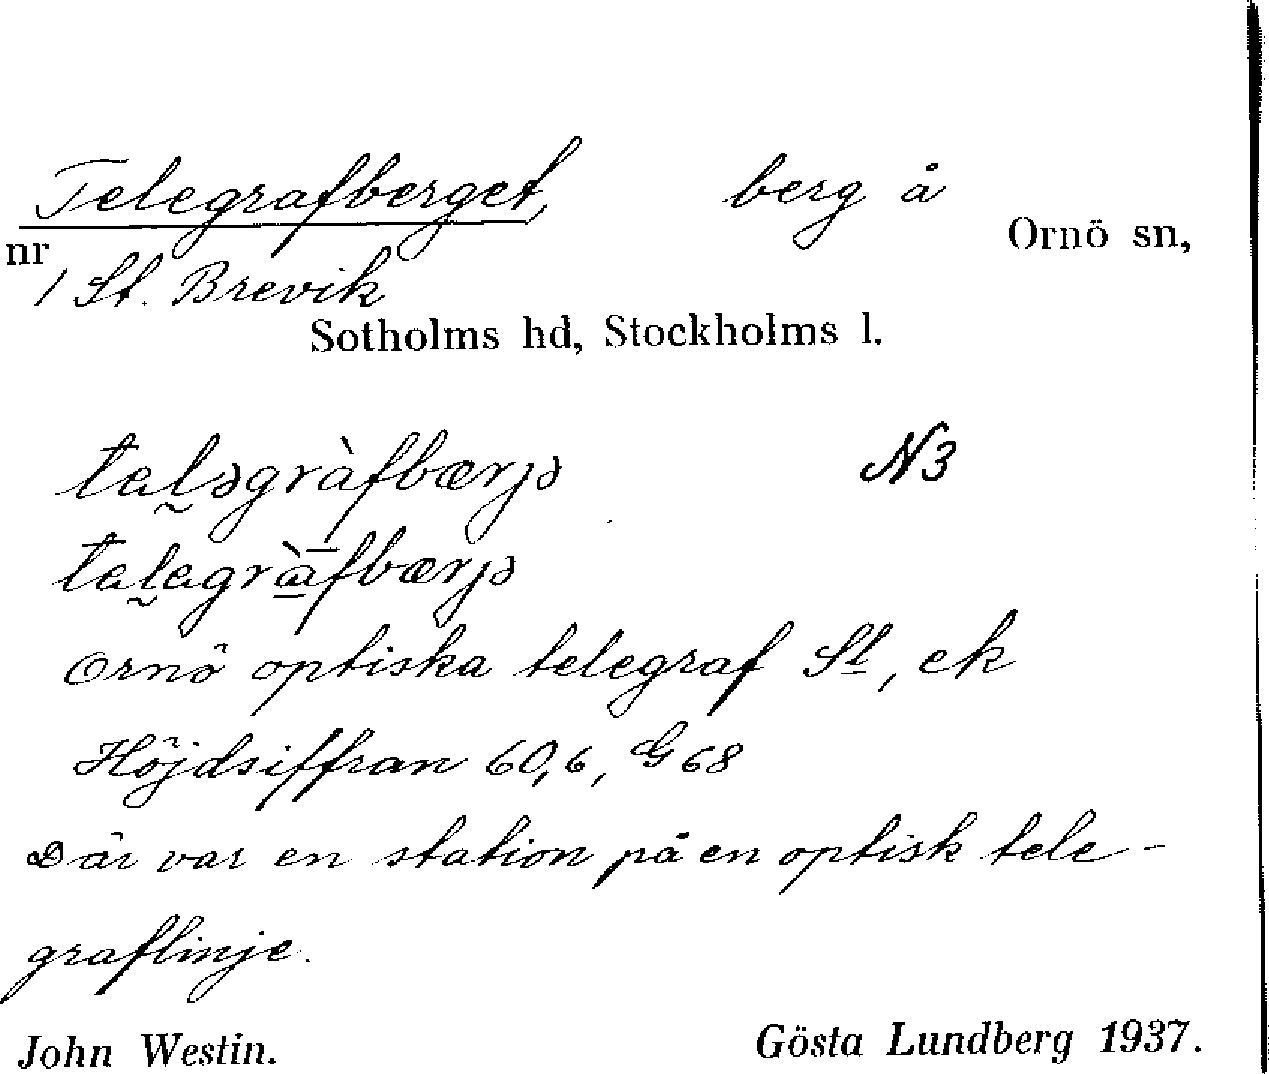 Telegrafberget, berg å
Ornö sn,
nr
1 St. Brevik
Sotholms hd, Stockholms l.
N3
Ornö optiska telegraf St, ek
Höjdsiffran 60,6, G 68
Där var en station på en optisk tele-
graflinje.
John Westin. Gösta Lundberg 1937.